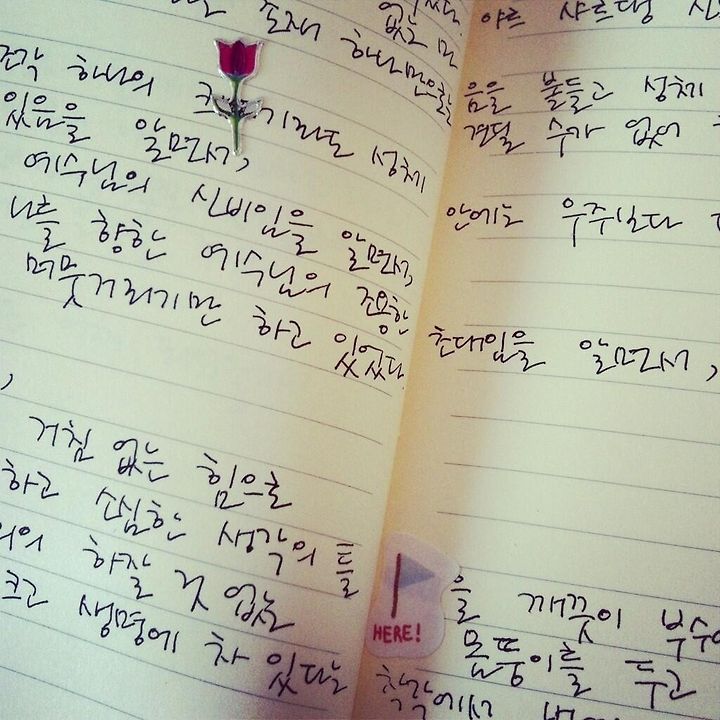 야르 샤르댕 신
없는 마음을 붙들고 성체
존재 하나만으로 견딜 수가 없어
조각 하나의 크기라도 성체 안에는 우주보다
있음을 알면서,
예수님의 신비임을 알면서,
나를 향한 예수님의 조용한 초대임을 알면서,
머뭇거리기만 하고 있었다.
,
거침 없는 힘으로
하고 소심한 생각의 틀을 깨끗이 부수
의 하잘 것 없는 몸뚱이를 두고
크고 생명에 차 있다는 착각에서
HERE!